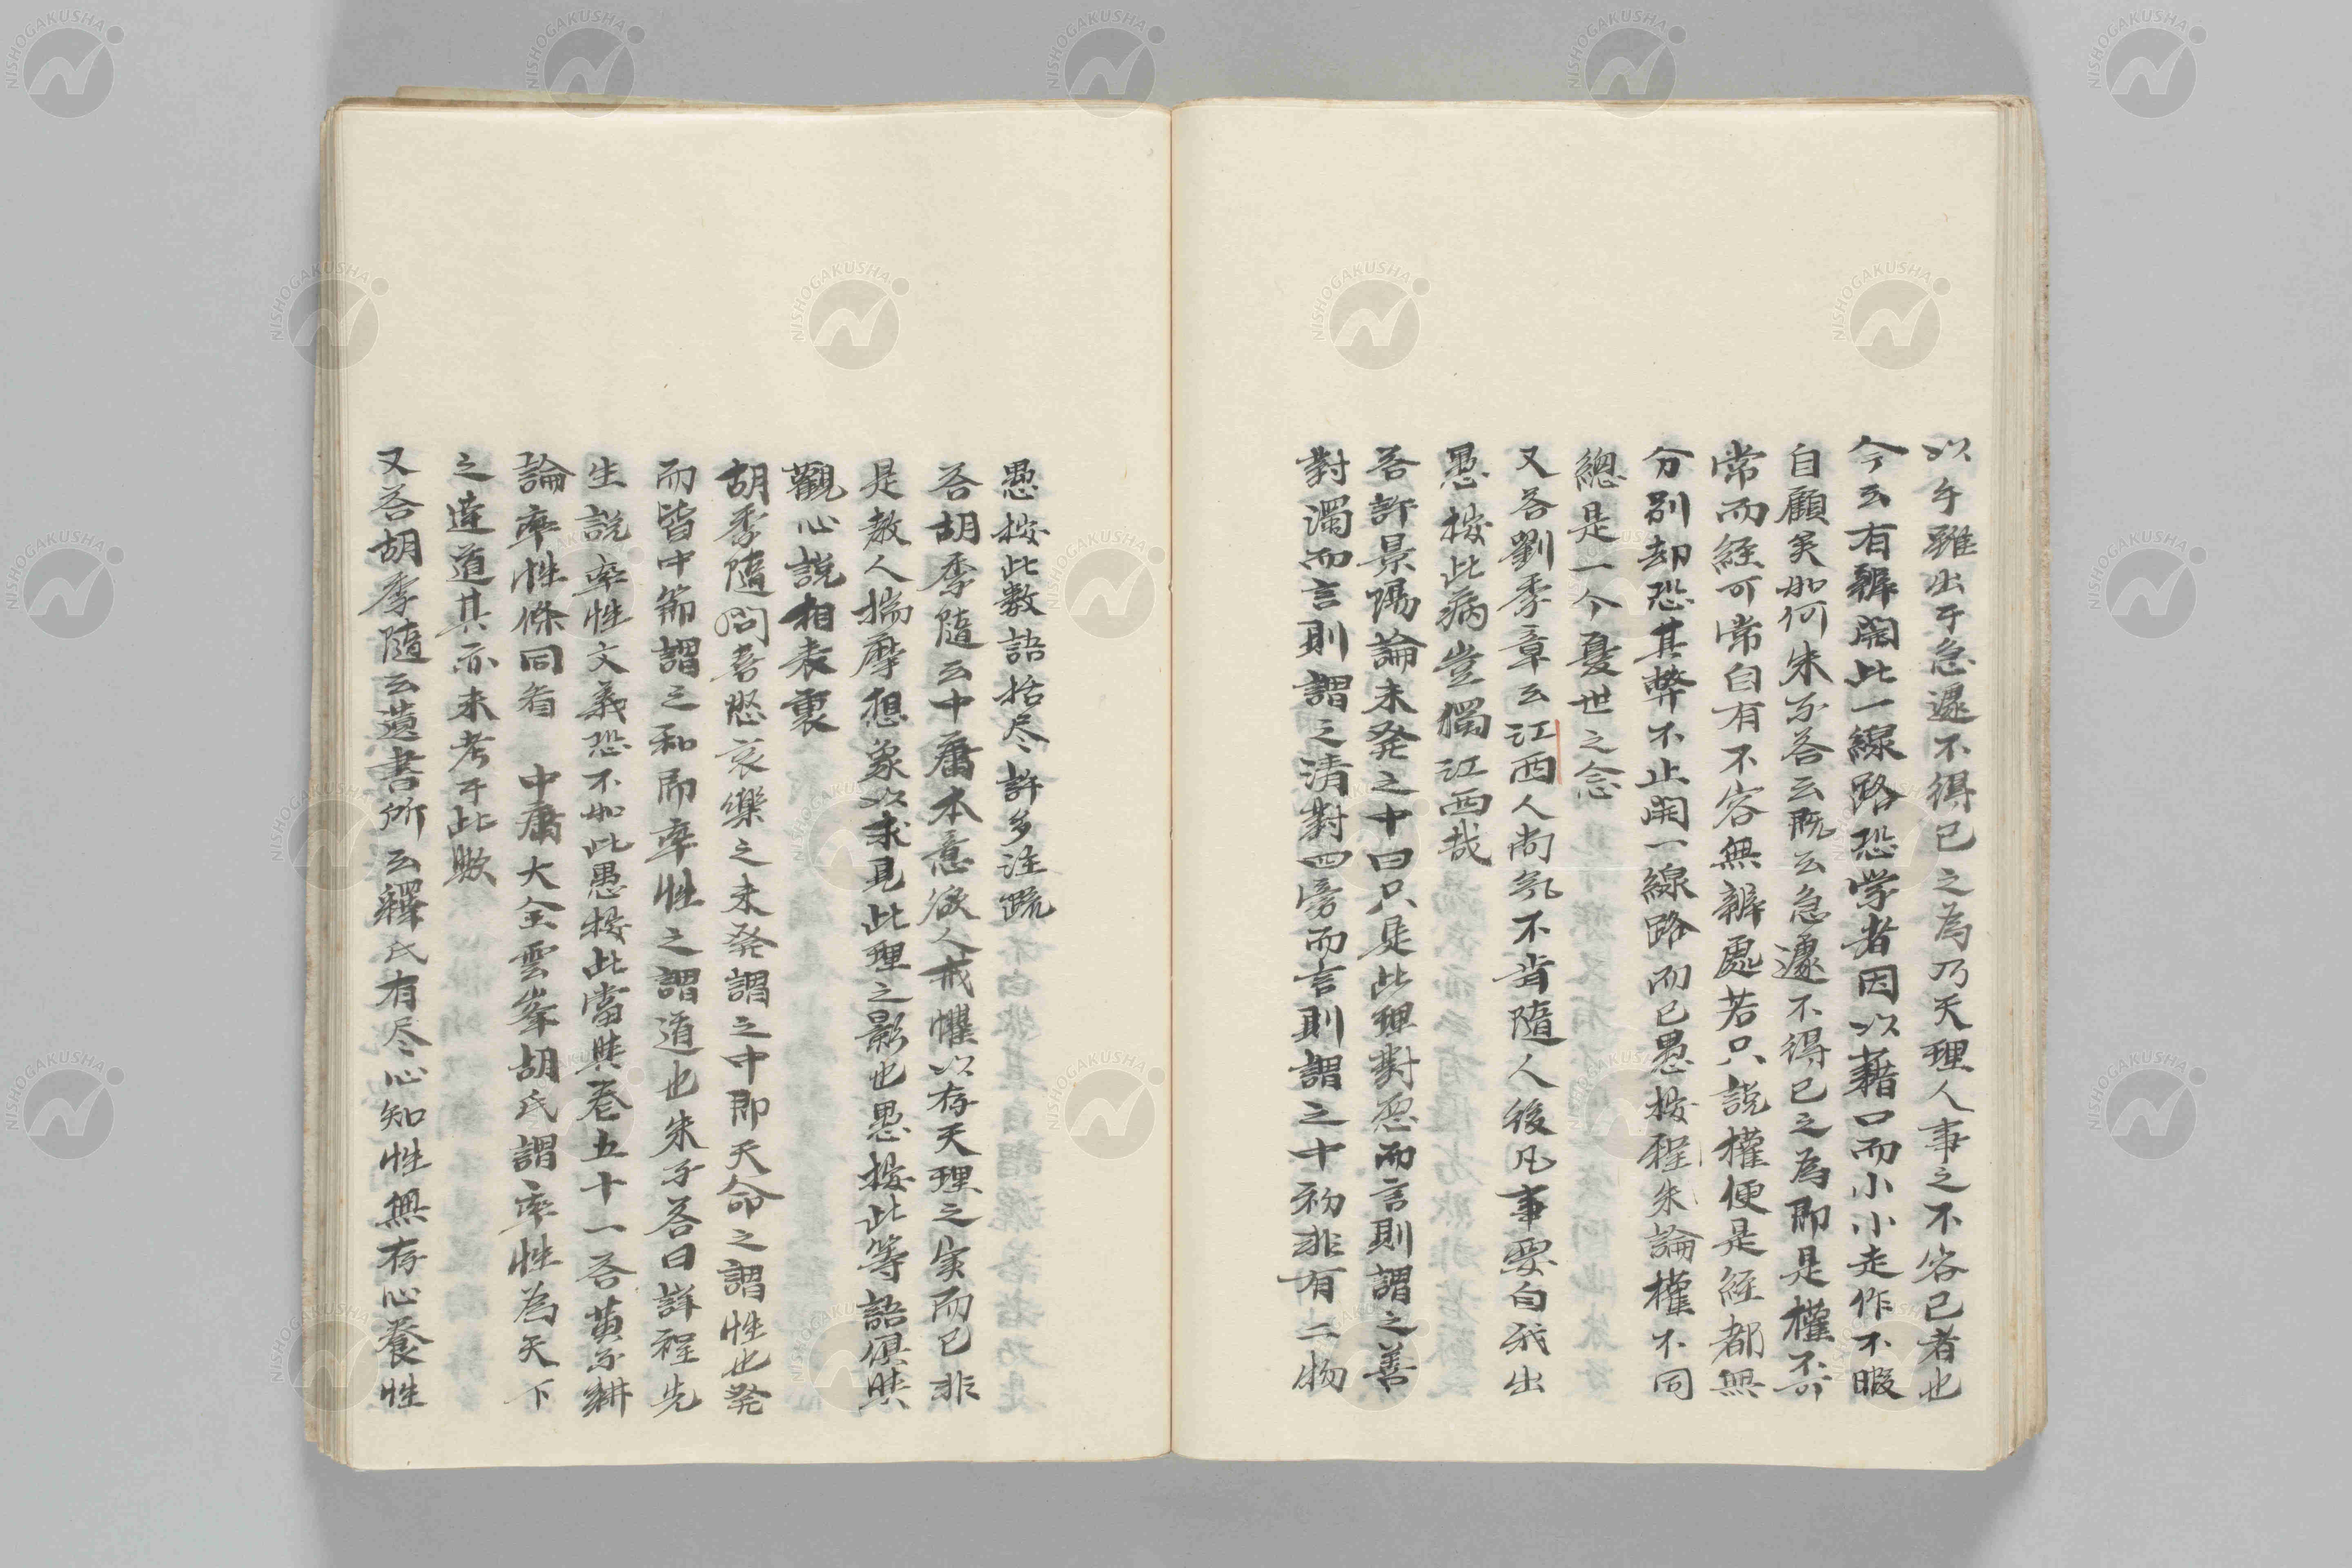 以手雖出于急遽不得已之為乃天理人事之不容已者也
今云有辨開此一線路恐学者因以藉口而小小走作不暇
自顧矣如何朱子答云既云急遽不得已之為即是權否
常而経可常自有不容無辨處若只説權便是経都無
分別却恐其弊不止開一線路而已愚按程朱論權不同
總是一个憂世之念
又答劉季章云江西人尚気不肯隨人後凡事要自我出
愚按此病豈獨江西哉
答許景陽論未発之中曰只是此理對惡而言則謂之善
對濁而言則謂之清對四旁而言則謂之中初非有二物
愚按此數語括尽許多注疏
答胡季隨云中庸本意欲人戒懼以存天理之実而已非
是教人揣摩想象以求見此理之影也愚按此等語俱與
觀心説相表裏
胡季隨問喜怒哀樂之未発謂之中即天命之謂性也発
而皆中節謂之和即率性之謂道也朱子答曰詳程先
生説率性文義恐不如此愚按此當與巻五十一答黄子耕
論率性條同看 中庸大全雲峯胡氏謂率性為天下
之達道其亦未考于此歟
又答胡季隨云遺書所云釋氏有尽心知性無存心養性
NISHOGAKUSHA